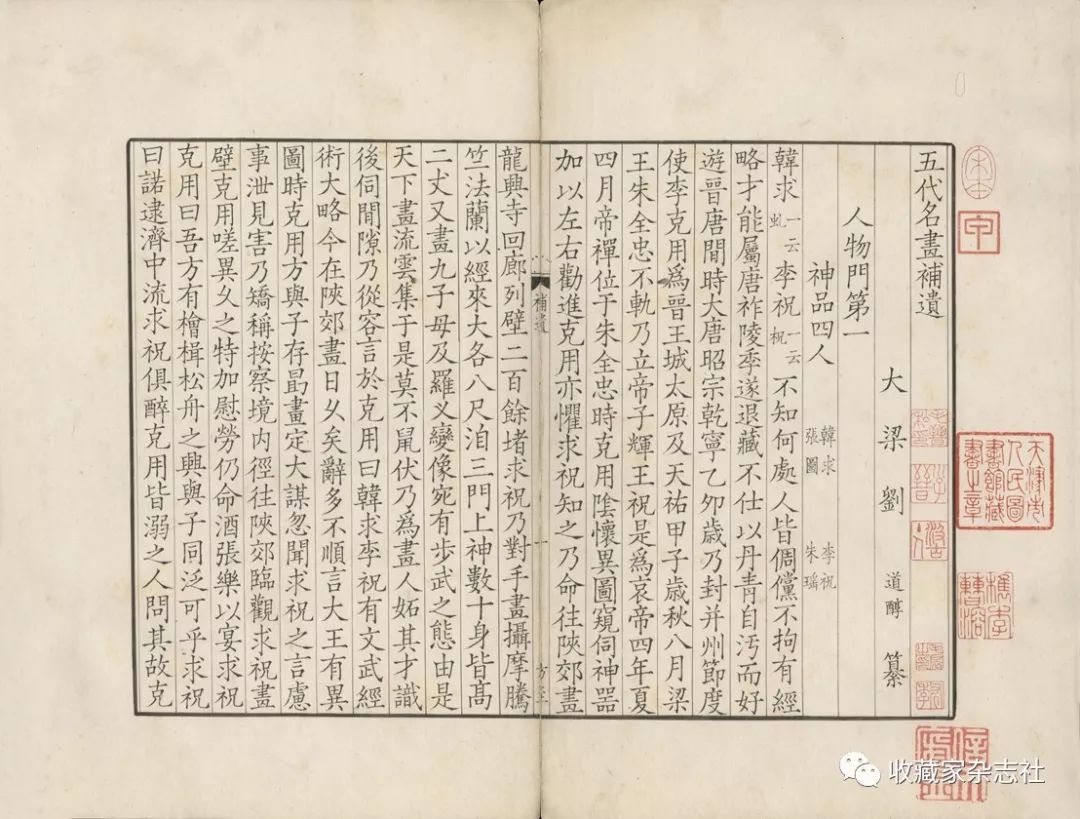 五代名畫補遺
大梁劉道醇纂
人物門第一
神品四人
韓求
李祝
張圖
朱瑤
韓求一云虬李祝一云柷不知何處人皆倜儻不拘有經
略才能屬唐祚陵季遂退藏不仕以丹青自汚而好
遊晉唐間時大唐昭宗乾寧乙夘歲乃封并州節度
使李克用爲晉王城太原及天祐甲子歲秋八月梁
王朱全忠不軌乃立帝子輝王祝是爲哀帝四年夏
四月帝禪位于朱全忠時克用陰懷異圖窺伺神器
加以左右勸進克用亦懼求祝知之乃命往陝郊畫
補遺
一
龍興寺回廊列壁二百餘堵求祝乃對手畫攝摩騰
竺法蘭以經來大各八尺洎三門上神數十身皆髙
二丈又畫九子母及羅义變像宛有步武之態由是
天下畫流雲集于是莫不鼠伏乃爲畫人妬其才識
後伺間隙乃從容言於克用曰韓求李祝有文武經
術大略今在陝郊畫日久矣辭多不順言大王有異
圖時克用方與子存勗畫定大謀忽聞求祝之言慮
事泄見害乃矯稱按察境内徑往陝郊臨觀求祝畫
壁克用嗟異久之特加慰勞仍命酒張樂以宴求祝
克用曰吾方有檜楫松舟之興與子同泛可乎求祝
曰諾逮濟中流求祝俱醉克用皆溺之人問其故克
宋本
天津市人民圖書館藏書之章
收藏家杂志社